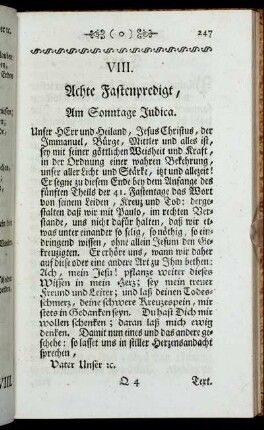 ( o ) 247
VIII.
Achte Fastenpredigt,
Am Sonntage Judica.
Unser HErr und Heiland, Jesus Christus, der
Immanuel, Bürge, Mittler und alles ist,
sey mit seiner göttlichen Weisheit und Kraft,
in der Ordnung einer wahren Bekehrung,
unser aller Licht und Stärke, itzt und allezeit!
Er segne zu diesem Ende bey dem Anfange des
fünften Theils der 41. Fastentage das Wort
von seinem Leiden, Kreuz und Tod: derge-
stalt daß wir mit Paulo, im rechten Ver-
stande, uns nicht dafür halten, daß wir et-
was unter einander so selig, so nöthig, so ein-
dringend wissen, ohne allein Jesum den Ge-
kreuzigten. Er erhört uns, wann wir daher
auf diese oder eine andere Art zu Ihm bethen:
Ach, mein Jesu! pflanze weiter dieses
Wissen in mein Herz; sey mein treuer
Freund und Leiter; und laß deinen Todes-
schmerz, deine schwere Kreuzespein, mir
stets in Gedanken seyn. Du hast Dich mir
wollen schenken; daran laß mich ewig
denken. Damit nun eines und das andere ge-
schehe: so lasset uns in stiller Herzensandacht
sprechen,
Vater Unser ꝛc.
Q 4 Text.